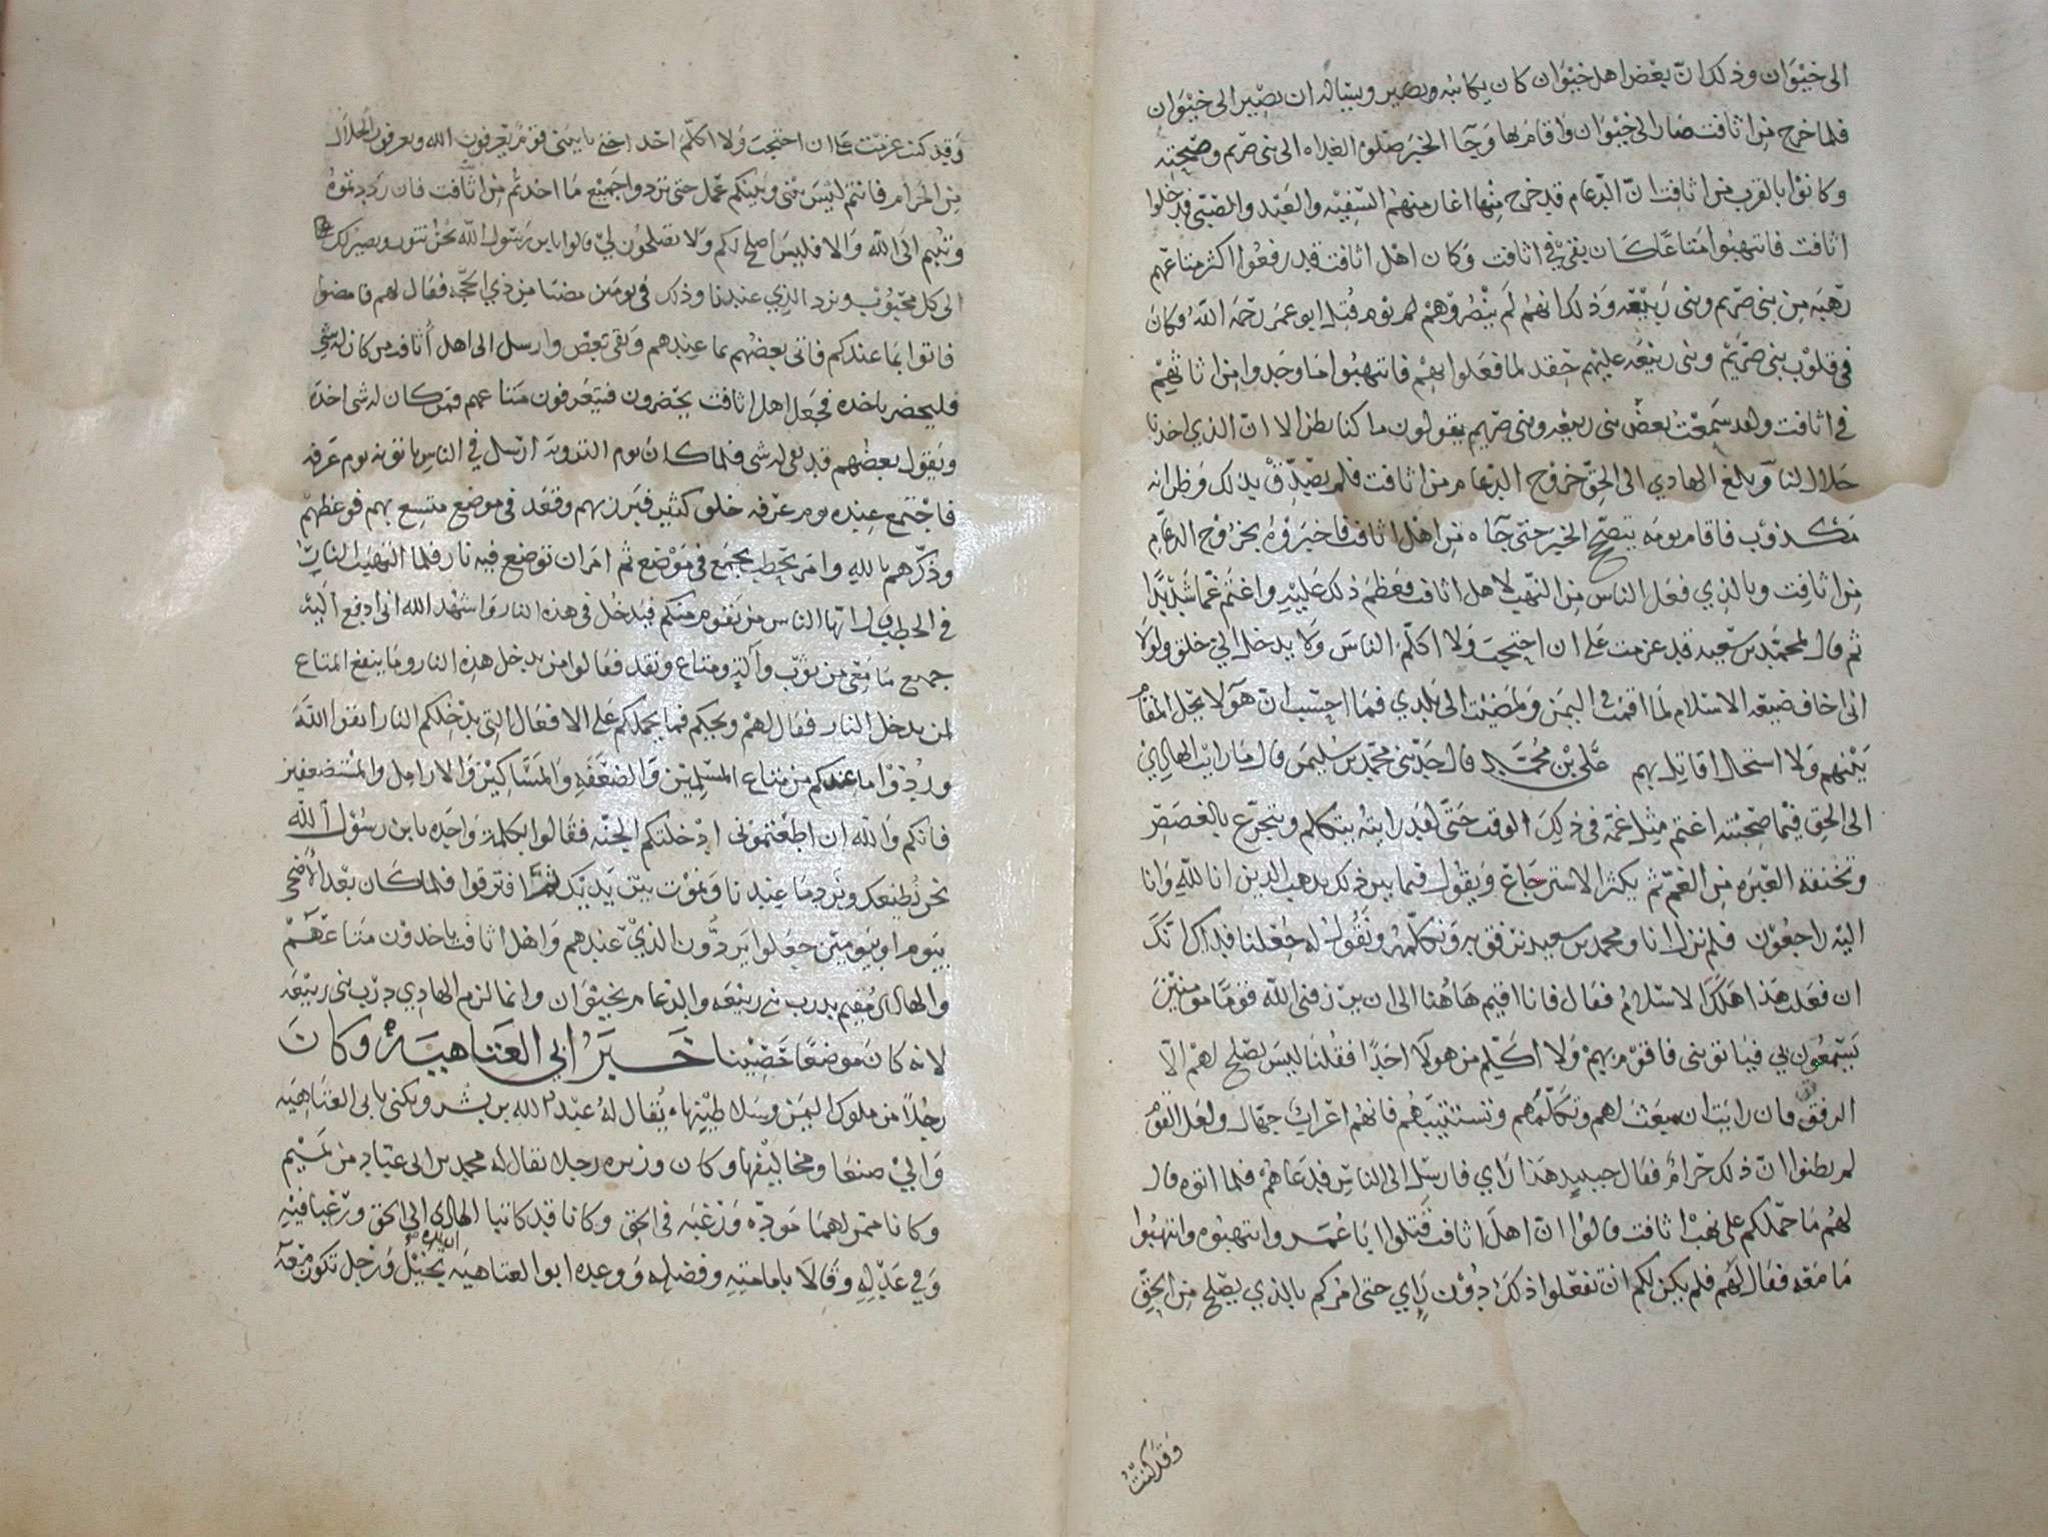 الى خيوان وذلك انّ بعض اهل خيوان كان يكاتبه ويصير ويساله ان يصير الى خيوان
فلما خرج من اثافت صار الى خيوان واقام بها وجآ الخبر صلوه الغداه الى بنى صريم وصبحته
وكانوا بالقرب من اثافت انّ الدعام قد خرج منها اغار منهم السفيه والعبد والصبى فدخلوا
اثافت فانتهبوا متاعًا كان بقى في اثافت وكان اهل اثافت قد رفعوا اكثر متاعهم
رهبه من بنى صريم وبنى ربيعه وذلك انهم لم ينصروهم لم يوم قتل ابو عمر رحمه الله وكان
فى قلوب بنى صريم وبنى ربيعه عليهم حقد لما فعلوا بهم فانتهبوا ما وجدوا من اثاثهم
في اثافت ولقد سمعت بعض بنى ربيعه وبنى صريم يقولون ما كنا نظن الا انّ الذي اخذنا
حلال لنا وبلغ الهادي الى الحق خروج الدعام من اثافت فلم يصدّق بذلك وظن انه
مكذوب فاقام يومه يتصحّح الخبر حتى جآه من اهل اثافت فاخبروه بخروج الدعام
من اثافت وبالذي فعل الناس من النهب لاهل اثافت فعظم ذلك عليه واغتم غما شديدًا
ثم قال لمحمد بن سعيد قد عزمت على ان احتجب ولا اكلم الناس ولا يدخل اليّ خلق ولولا
انى اخاف ضيعه الاسلام لما اقمت في اليمن ولمضيت الى بلدي فما احتسب انّ هولا يحل المقام
بينهم ولا استحل اقاتل بهم علي بن محمد قال حدثنى محمد بن سليمن قال ما رايت الهادي
الى الحق فيما صحبته اغتم مثل غمه فى ذلك الوقت حتّى لقد رايته يتكلم ويتجرع بالغصص
وتخنقه العبره من الغم ثم يكثر الاسترجاع ويقول فيما بين ذلك يذهب الدين انا لله وانا
اليه راجعون فلم نزل انا ومحمد بن سعيد نرفق به ونكلمه ونقول له جعلنا فداك انّك
ان فعلت هذا هلك الاسلام فقال فانا اقيم هاهنا الى ان يرزقنى الله قومًا مومنين
يسمعون بي فياتونى فاقوم بهم ولا اكلم من هولآ احدًا فقلنا ليس يصلح لهم الّا
الرفق فان رايت ان تبعث لهم وتكلمهم وتستتيبهم فانهم اعراب جهال ولعل القوم
لم يظنوا انّ ذلك حرام فقال حينيذ هذا راي فارسل الى الناس فدعاهم فلما اتوه قال
لهم ما حملكم على نهب اثافت قالوا انّ اهل اثافت قتلوا ابا عمر وانتهبوه وانتهبوا
ما معه فقال لهم فلم يكن لكم ان تفعلوا ذلك دون راي حتى امركم بالذي يصلح من الحق
وقد كنت
وقد كنت عزمت على ان احتجب ولا اكلم احدا حتى ياتينى قوم يعرفون الله ويعرفون الحلال
من الحرام فانتم ليس بينى وبينكم عمل حتى تردوا جميع ما اخذتم من اثافت فان رددتموه
وتبتم الى الله والا فليس اصلح لكم ولا تصلحون ليّ قالوا يا بن رسول الله نحن نتوب ونصير لك
الى كل محبوب ونرد الذي عندنا وذلك فى يومين مضتا من ذي الحجه فقال لهم فامضوا
فاتوا بما عندكم فاتى بعضهم بما عندهم وبقى بعض وارسل الى اهل أثافت من كان له شي
فليحضر ياخذه فجعل اهل اثافت يحضرون فيتعرفون متاعهم فمن كان له شى اخذه
ويقول بعضهم قد بقى له شى فلما كان يوم الترويه ارسل في الناس ياتونه يوم عرفه
فاجتمع عنده يوم عرفه خلق كثير فبرز بهم وقعد فى موضع متسع بهم فوعظهم
وذكّرهم بالله وامر بحطب يجمع فى موضع ثم امر ان توضع فيه نار فلما التهبت النار
في الحطب قال ايها الناس من يقوم منكم فيدخل في هذه النار واشهد الله انى ادفع اليه
جميع ما معى من ثوب وآلة ومتاع ونقد فقالوا من يدخل هذه النار وما ينفع المتاع
لمن يدخل النار فقال لهم ويحكم فما يحملكم على الافعال التى يدخلكم النار اتقوا الله
وردّوا ما عندكم من متاع المسلمين والضعفه والمساكين والارامل والمستضعفين
فانكم والله ان اطعتمونى ادخلتكم الجنه فقالوا بكلمة واحده يا بن رسول الله
نحن نطيعك ونرد ما عندنا ونموت بين يديك ثم افترقوا فلما كان بعد الاضحى
بيوم او يومين جعلوا يردّون الذي عندهم واهل اثافت ياخذون متاعهم
والهادى مقيم بدرب بنى ربيعه والدعام بخيوان وانما لزم الهادي درب بنى ربيعه
لانه كان موضعًا خصيبنا خبر ابي العتاهية وكان
رجلاً من ملوك اليمن وسلاطينهاء يقال له عبد الله بن بشر ويكنى بابى العتاهيه
والي صنعا ومخاليفها وكان وزيره رجلا يقال له محمد بن ابى عباد من تميم
وكانا ممن لهما مودّه ورغبه فى الحق وكانا قد كاتبا الهادى الى الحق ورغبا فيه
وفي عدله وقالا بامامته وفضله ووعده ابو العتاهيه بخيل ورجل تكون معه